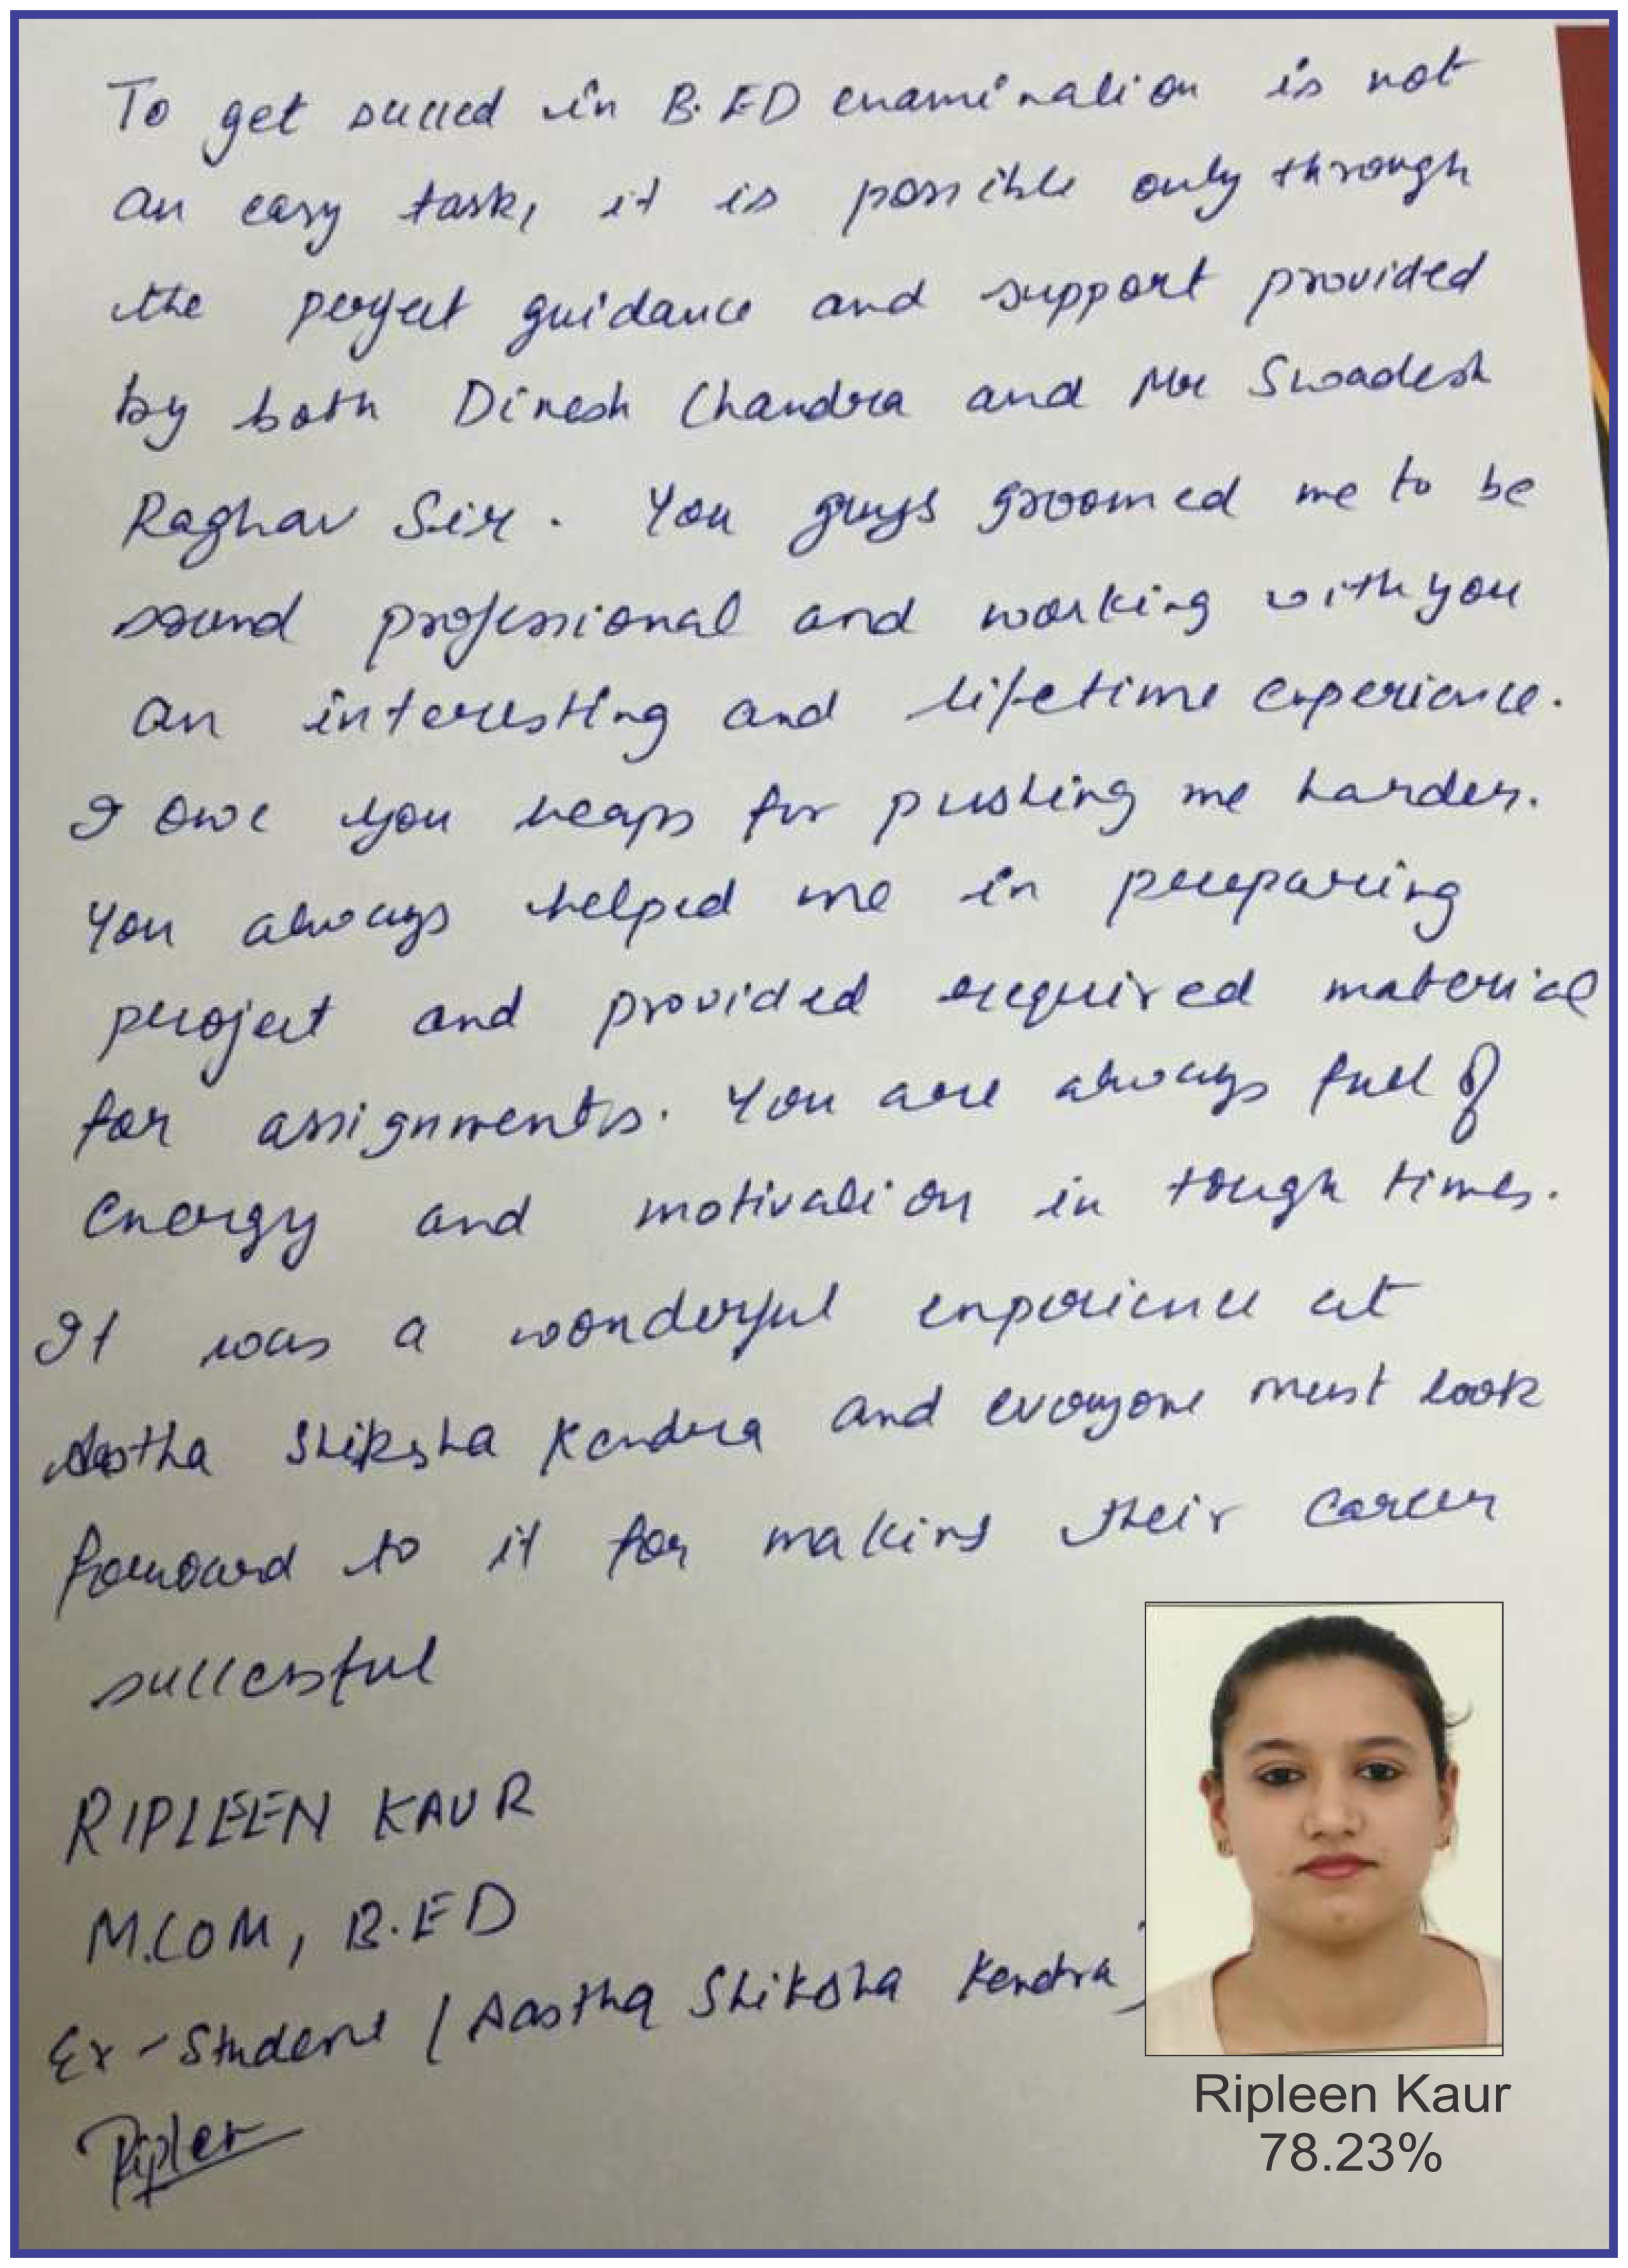 To get succed in B.ED examination is not
an easy task, it is possible only through
the perfect guidance and support provided
by both Dinesh Chandra and Mr Swadesh
Raghav Sir. You guys groomed me to be
sound professional and working with you
an interesting and lifetime experience.
I owe you heaps for pushing me harder.
You always helped me in preparing
project and provided required material
for assignments. You are always full of
Energy and motivation in tough times.
It was a wonderful experience at
Aastha Shiksha Kendra and everyone must look
forward to it for making their career
successful
RIPLEEN KAUR
M.COM, B.ED
Ex-Student (Aastha Shiksha Kendra)
Ripleen
Ripleen Kaur
78.23%